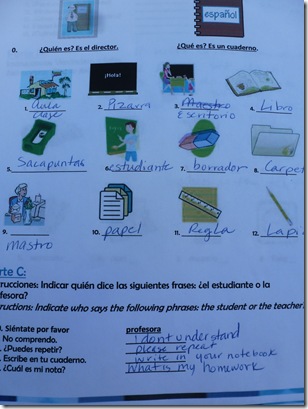 español
0. ¿Quién es? Es el director. ¿Qué es? Es un cuaderno.
¡Hola!
1. Aula 2. Pizarra 3. Maestro 4. Libro
clase Escritorio
5. Sacapuntas 6. estudiante 7. borrador 8. Carpet
9. 10. papel 11. Regla 12. Lapi
mastro
rte C:
rucciones: Indicar quién dice las siguientes frases: ¿el estudiante o la
fesora?
ructions: Indicate who says the following phrases: the student or the teacher
0. Siéntate por favor profesora
No comprendo. I dont understand
¿Puedes repetir? please repeat
Escribe en tu cuaderno. write in your notebook
¿Cuál es mi nota? What is my homework